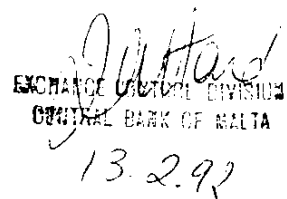 EXCHANGE CONTROL DIVISION
CENTRAL BANK OF MALTA
13.2.92